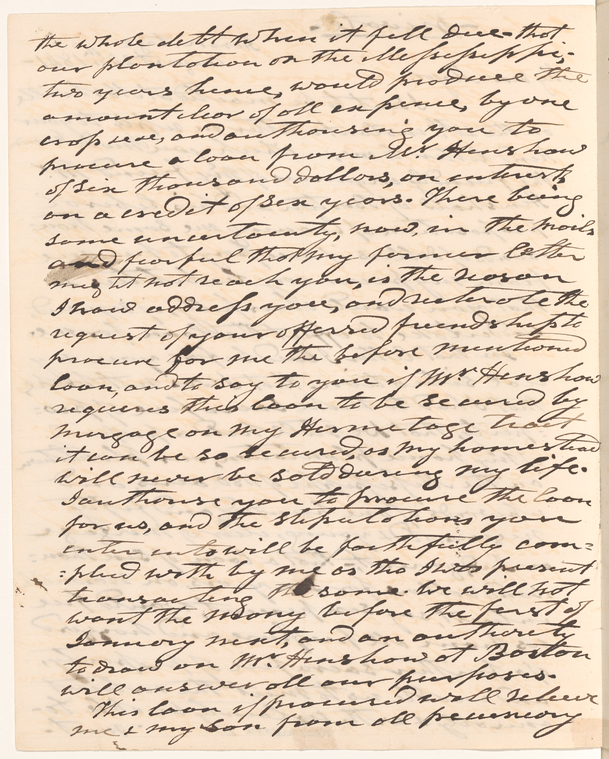 the whole debt when it fell due - that
our plantation on the Mississippi;
two years hence, would produce the
amount clear of all expence, by one
crop                and authorising you to
procure a loan from Mr. Henshaw
of six thousand dollars, on interest,
on a credit of six years. There being
some uncertainty, now, in the mails
and fearful that my former letter
might not reach you, is the reason
I now address you, and reiterate the
request of your offerred friendship to
procure for me the before mentioned
loan, and to say to you if Mr Henshaw
requires this loan to be secured by
morgage on my Hermitage tract
it can be so secured, as my homestead
will never be sold during my life.
I authorise you to procure the loan
for us, and the stipulations you
enter into will be faithfully com=
:plied with by me as tho I was present
transacting the same. we will not
want the mony before the first of
January next, and an authority
to draw on Mr. Henshaw at Boston
will answer all our purposes.
This loan if procured will relieve
me & my son from all pecuniary